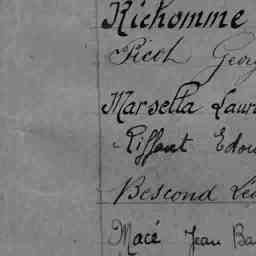 Richomme
Picot Georg
Marsella Laur
Riffaut Edou
Bescond Lé
Macé Jean Ba